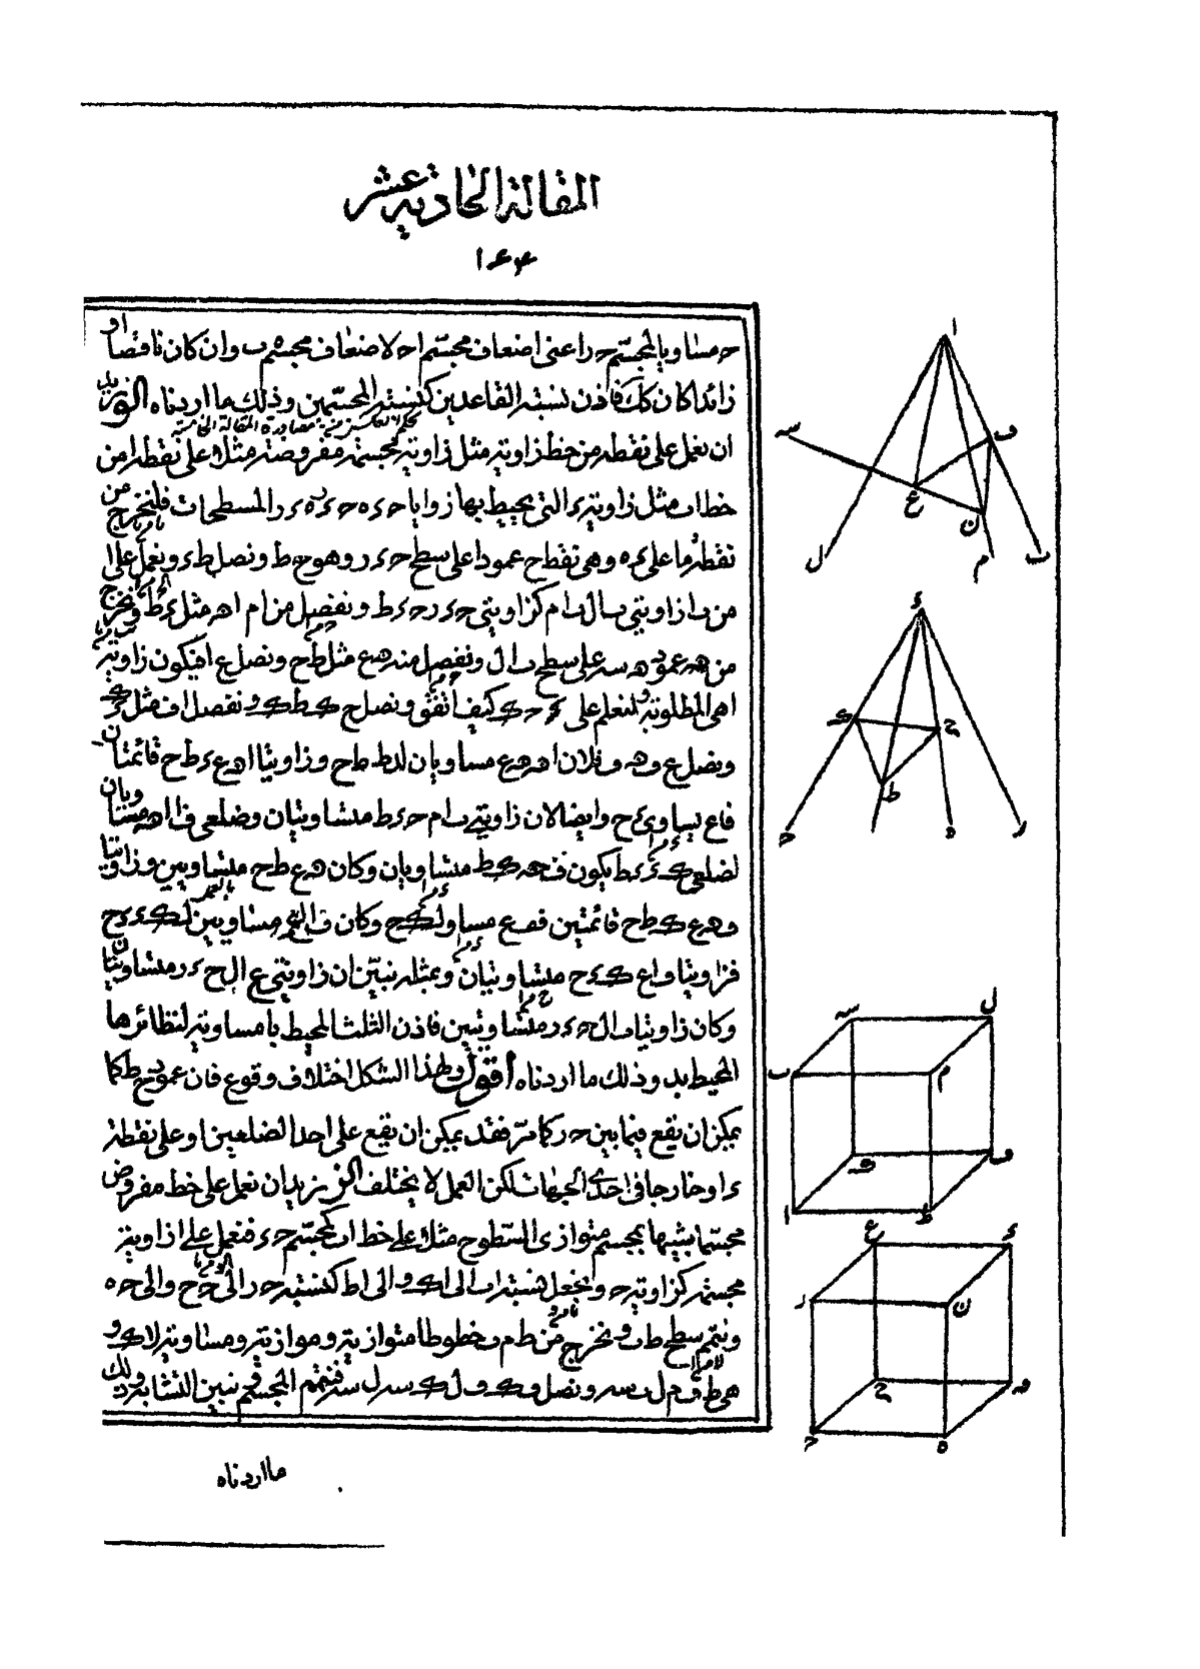 المقالة الحادية عشر
١٦٤
حـ مساويا لمجسم حـ ر اعنى اضعاف مجسم اح لاضعاف مجسم ب وان كان ناقصا او
زائدا كان كك فاذن نسبة القاعدين كنسبة المجسمين وذلك ما اردناه نريد
بحكم مصادرة المقالة الخامسة
ان نعمل على نقطة من خط زاوية مثل زاوية مجسمة مفروضة مثلا على نقطة ا من
خط اب مثل زاوية ء التى يحيط بها زوايا حـ ء ه حـ ء ر ه ء ر المسطحات فلنخرج من
نقطة ما على ء ه وهى نقطة ح عمودا على سطح حـ ء ر وهو ح ط ونصل ط ء ونعمل على ا
من ب ا زاويتى ب ا ل ب ا م كزاويتى حـ ء ر حـ ء ط ونفصل من ا م ا هـ مثل ء ط ونخرج
من هـ عمود هـ سـ على سطح ب ا ل ونفصل منه هـ ع مثل ط ح ونصل ع ا فيكون زاوية
ا هى المطلوبة ولنعلم على ء حـ ك كيف اتفق ونصل ح ك ط ك ونفصل ا ف مثل ء ك
ونصل ع ف هـ ف فلان ا هـ هـ ع مساويان لـ ء ط ط ح وزاويتا ا هـ ع ء ط ح قائمتان
فـ ا ع يساوى ء ح وايضا لان زاويتى ب ا م حـ ء ط متساويتان وضلعى ف ا ا هـ مساويان
لضلعى ك ء ء ط يكون ف هـ ك ط متساويان وكان هـ ع ط ح متساويين وزاويتا
ف هـ ع ك ط ح قائمتين فـ ف ع مساو لـ ك ح وكان ف ا ا ع مساويين لـ ك ء ء ح
فزاويتا ف ا ع ك ء ح متساويتان وبمثله نبين ان زاويتى ع ا ل ح ء ر متساويتان
وكان زاويتا ب ا ل حـ ء ر متساويتين فاذن الثلث المحيط با مساوية لنظائرها
المحيط بـ ء وذلك ما اردناه اقول ولهذا الشكل اختلاف وقوع فان عمود ح ط كما
يمكن ان يقع فيما بين حـ ر كما مر فقد يمكن ان يقع على احد الضلعين او على نقطة
ء او خارجا فى احدى الجهات لكن العمل لا يختلف نريد ان نعمل على خط مفروض
مجسما شبيها بمجسم متوازى السطوح مثلا على خط اب كمجسم حـ ء فنعمل على ا زاوية
مجسمة كزاوية حـ ونجعل نسبة اب الى ا ك والى ا ط كنسبة حـ ر الى حـ ح والى حـ ه
ونتمم سطح ط ب ونخرج من ط م ب خطوطا متوازية وموازية ومساوية لا ك و
هى ط ف م ل ب سـ ونصل ف ك ف ل ك سـ ل سـ فنتمم المجسم نبين التشابه وذلك
ما اردناه
ا
سـ
ف
ع
ن
ل
م
ب
ء
ك
ح
ط
حـ
ه
ر
سـ
ل
ب
م
ك
ف
ا
ط
ع
ء
ر
ن
ح
ف
حـ
ه